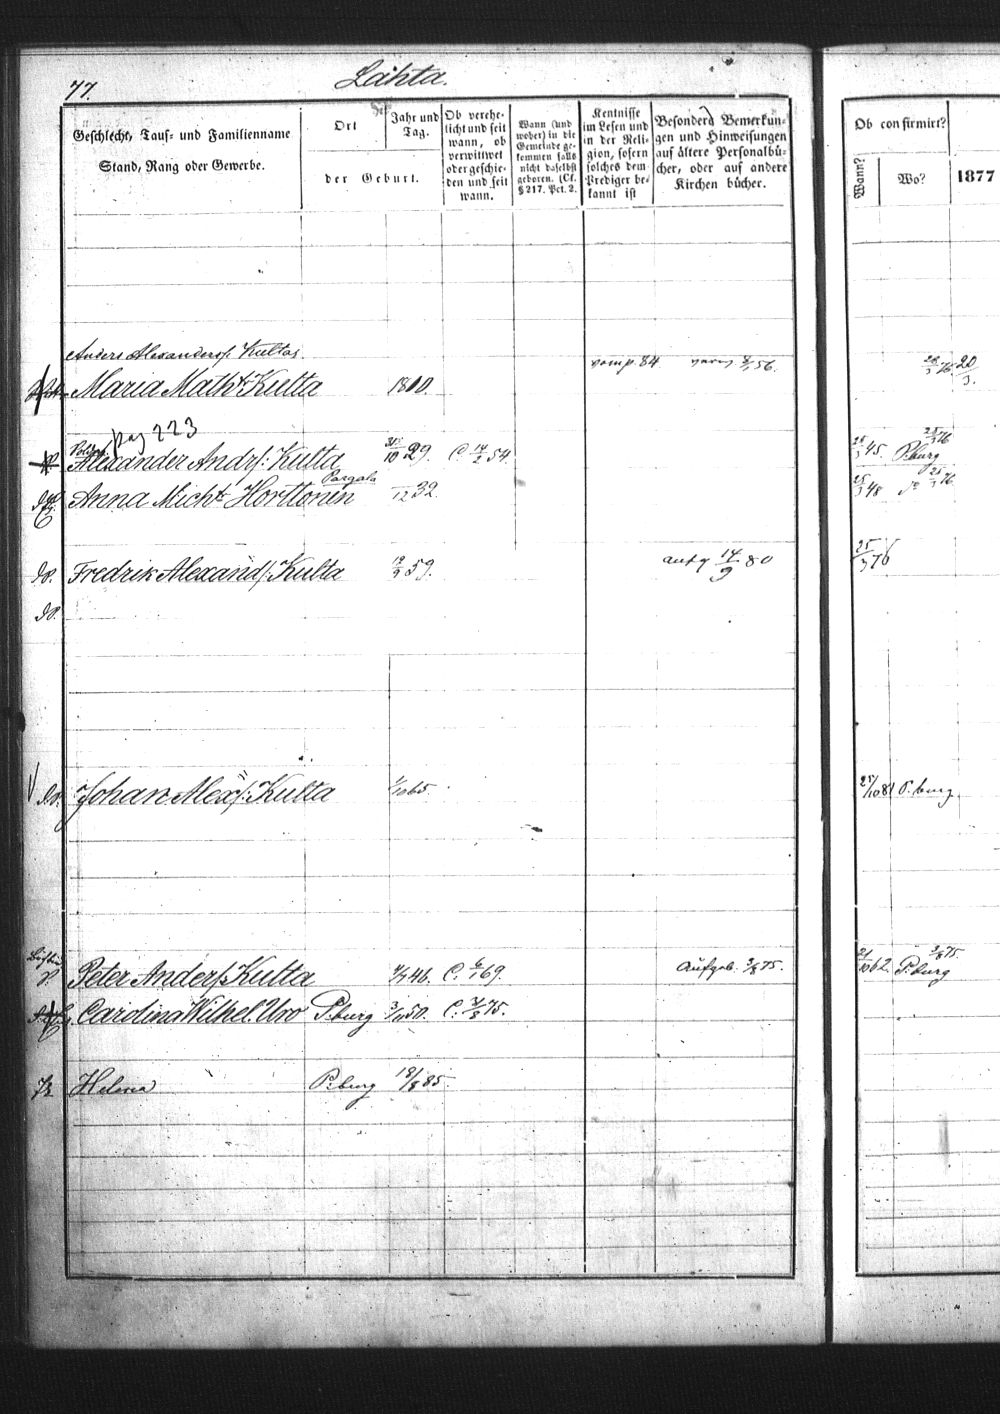 77.
Lahta.
Geschlecht, Tauf- und Familienname
Stand, Rang oder Gewerbe.
Ort
Jahr und Tag.
der Geburt.
Ob verehe-
licht und seit
wann, ob
verwittwet
oder geschie-
den und seit
wann.
Wann (und
woher) in die
Gemeinde ge-
kommen falls
nicht daselbst
geboren. (Cf.
§ 217. Pct. 2.
Kentnisse
im Lesen und
in der Reli-
gion, sofern
solches dem
Prediger be-
kannt ist
Besonderd Bemerkun-
gen und Hinweisungen
auf ältere Personalbü-
cher, oder auf andere
Kirchen bücher.
Ob confirmirt?
Wann?
Wo?
1877
Anders Alexanders. Kultas
Maria Math. Kulta 1810. 84 56. 20/3.
pag 223
Alexander Andrs: Kulta 31/10 29 C. 14/2 54. 45. P.burg
Pargala
Anna Mich. Horttonen /12 32. 25/3 48
do. Fredrik Alexands: Kulta 19/3 59. aufg 14/9 80 25/3 76
do.
do. Johan Alexs: Kulta 1/10 65. 25/10 81 P.burg
Peter Anders. Kulta 46. C. 6/1 69. Aufgeb. 3/8 75. 21/10 62. P.burg 3/8 75.
Carolina Wilhel. Uro P.burg 50. C. 75.
Helena P.burg 18/8 85.